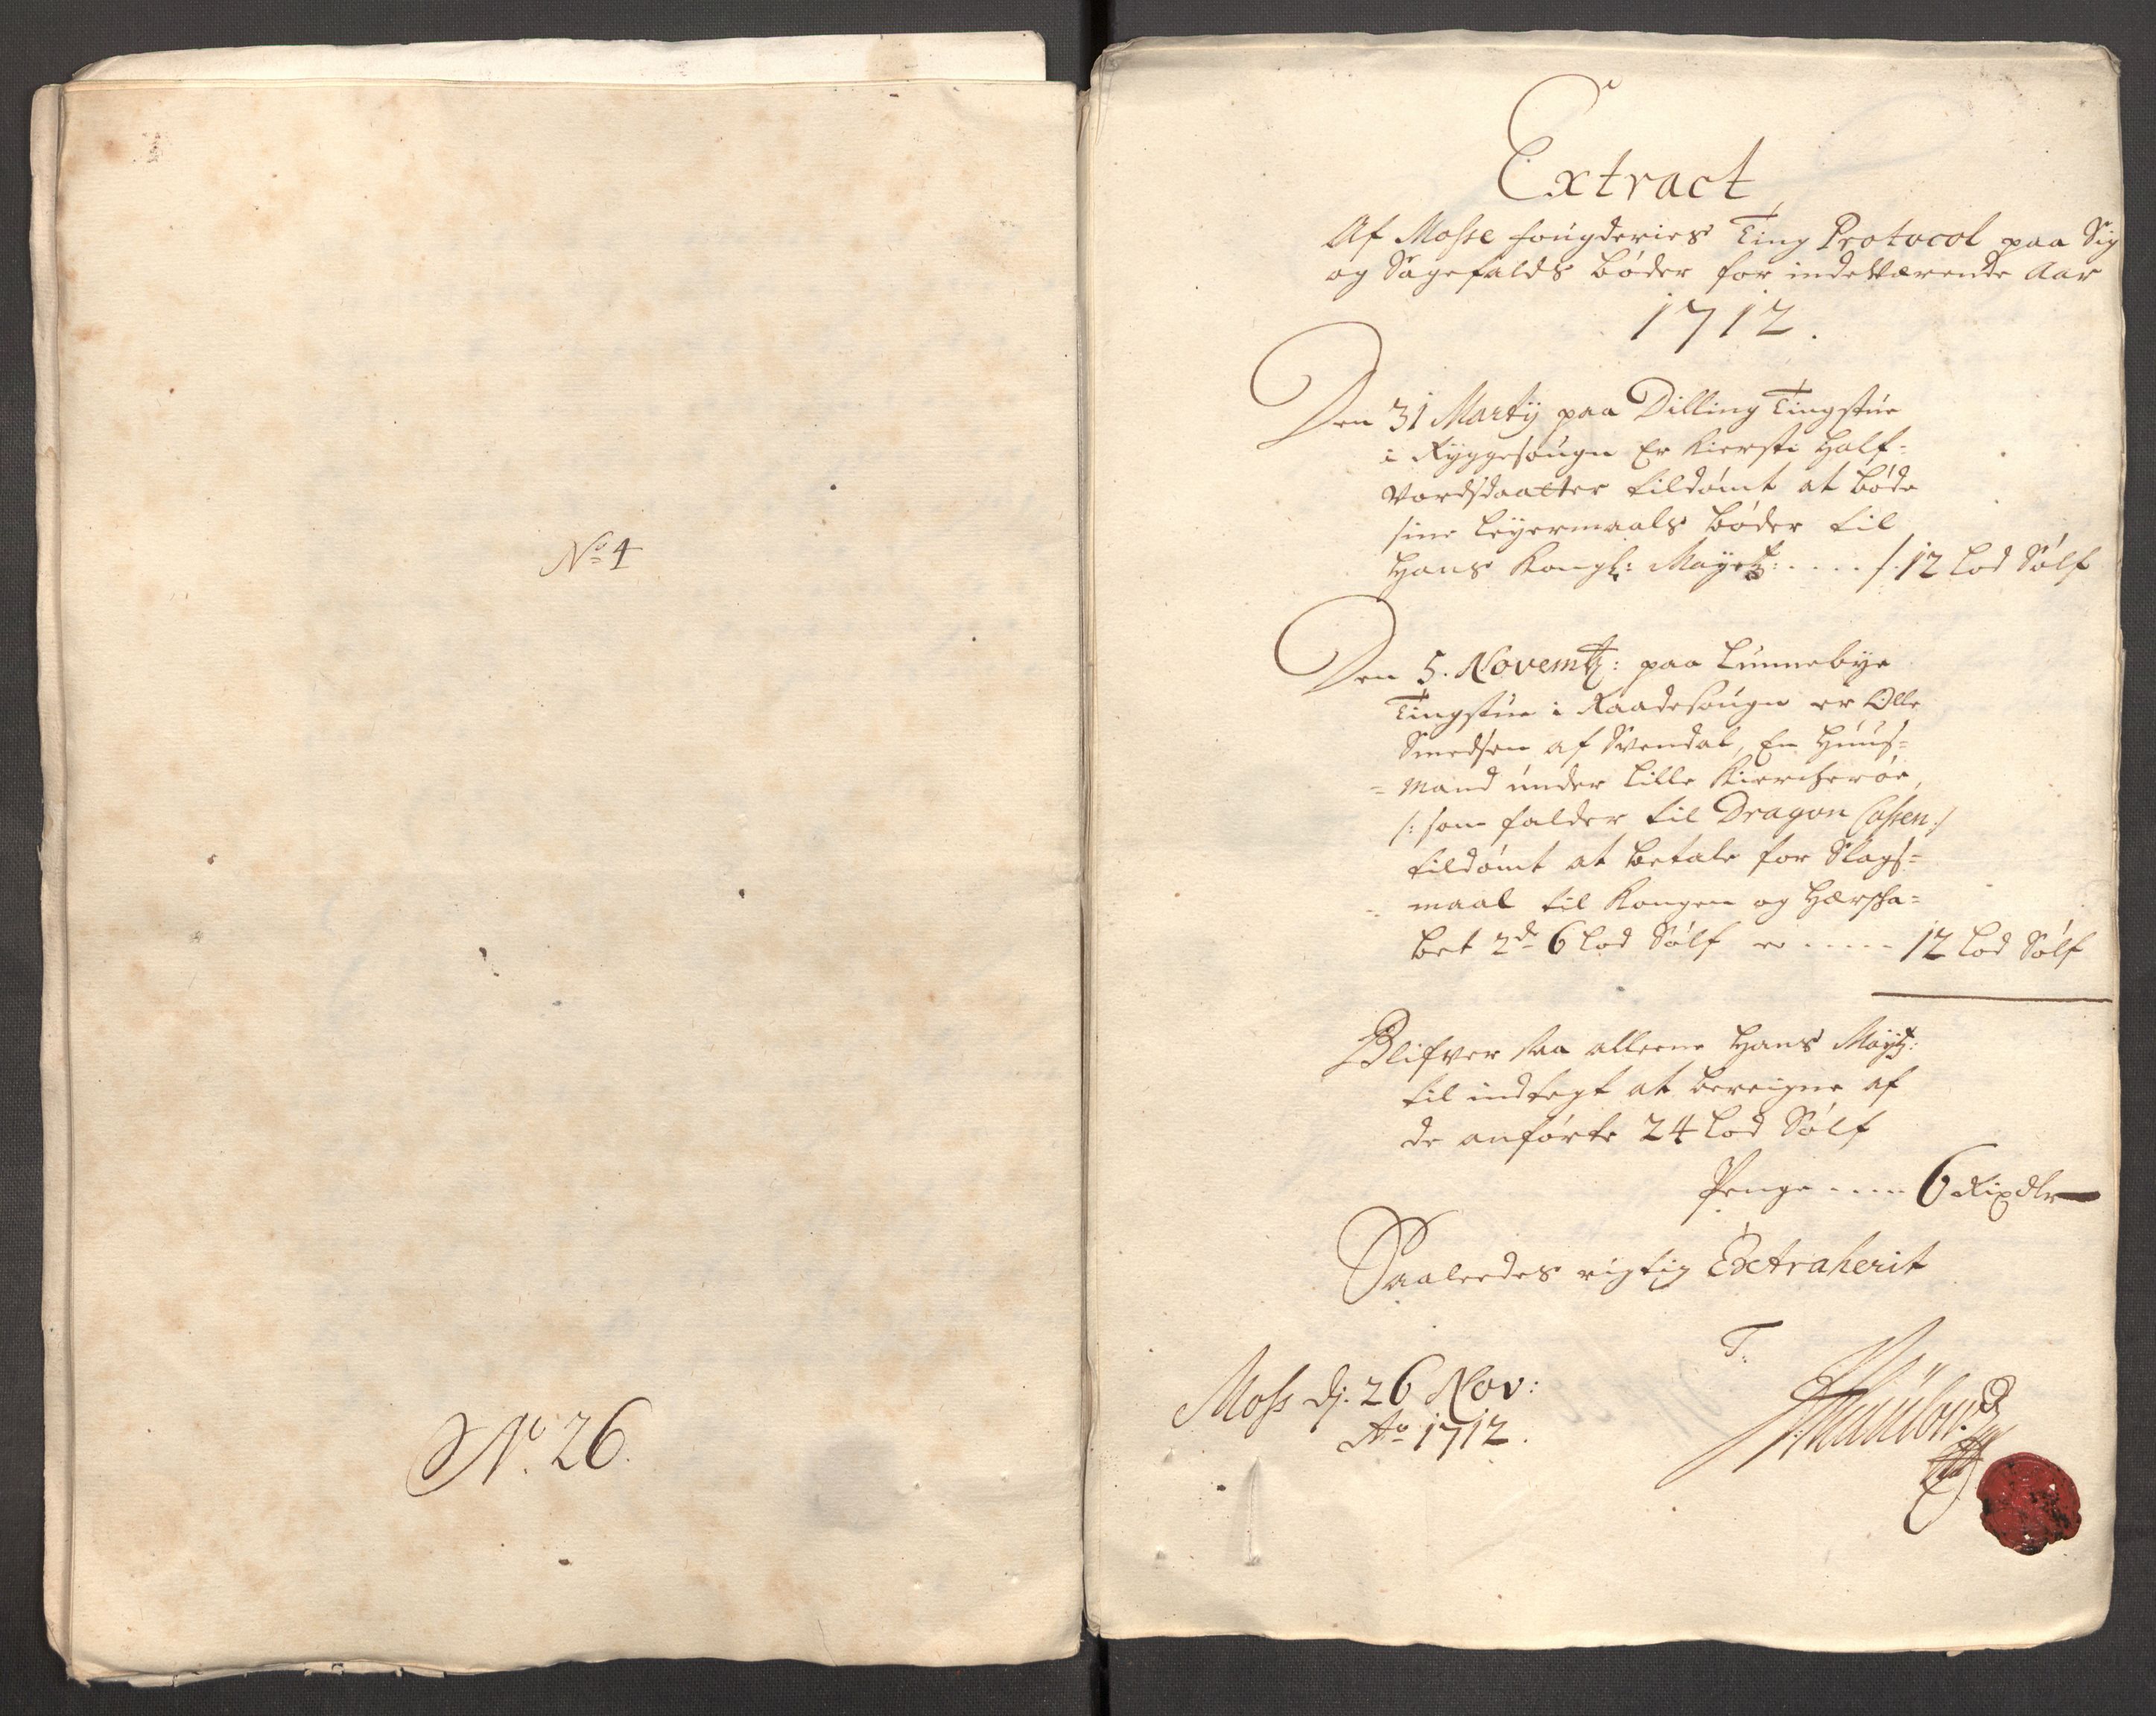 No 4
No. 26.
Extract
Af Mosse fougderies Ting Protocol paa Sig
og Sagefalds bøder for indeværende Aar
1712.
Den 31 Martij paa Dilling Tingstue
i Ryggesougn Er Kiersti Half-
vordsdaatter tildømt at bøde
sine leyermaals bøder til
Hans Kongl: Mayetz: .... /. 12 Lod Sølf
Den 5. Novemb: paa Lunnebye
Tingstue i Raadesougn er Olle
Smedsen af Svendal, En Huus-
= mand under lille Kircherøe,
/: som falder til Dragon Cassen :/
tildømt at betale for Slags-
= maal til Kongen og Herska-
bet 2de 6 Lod Sølf er ..... 12 Lod Sølf
Blifver saa alleene Hans Maytz:
til indtegt at bereigne af
de anførte 24 Lod Sølf
Penge .... 6 Rixdlr
Saaleedes rigtig Extraherit
T:
Moss dj. 26 Nov:
Ao 1712.